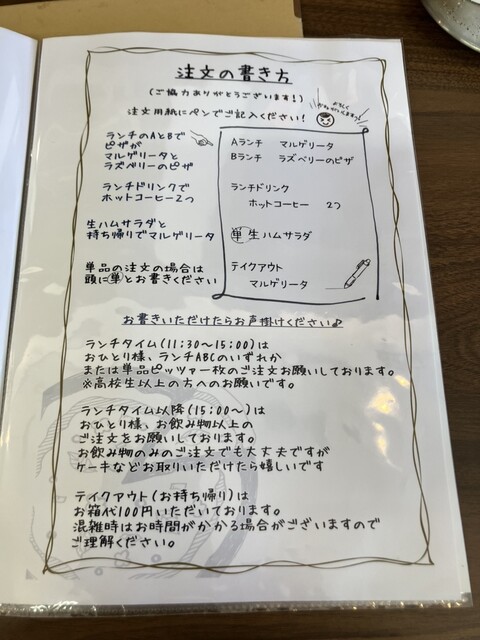 注文の書き方
(ご協力ありがとうございます!)
注文用紙にペンでご記入ください!
よろしく
おねがいしまーす
ランチのAとBで
ピザが
マルゲリータと
ラズベリーのピザ
Aランチ マルゲリータ
Bランチ ラズベリーのピザ
ランチドリンクで
ホットコーヒー2つ
ランチドリンク
ホットコーヒー 2つ
生ハムサラダと
持ち帰りでマルゲリータ
単 生ハムサラダ
単品の注文の場合は
頭に単とお書きください
テイクアウト
マルゲリータ
お書きいただけたらお声掛けください♪
ランチタイム(11:30~15:00)は
おひとり様、ランチABCのいずれか
または単品ピッツァ一枚のご注文お願いしております。
※高校生以上の方へのお願いです。
ランチタイム以降(15:00~)は
おひとり様、お飲み物以上の
ご注文をお願いしております。
お飲み物のみのご注文でも大丈夫ですが
ケーキなどお取りいただけたら嬉しいです
テイクアウト(お持ち帰り)は
お箱代100円いただいております。
混雑時はお時間がかかる場合がございますので
ご理解ください。